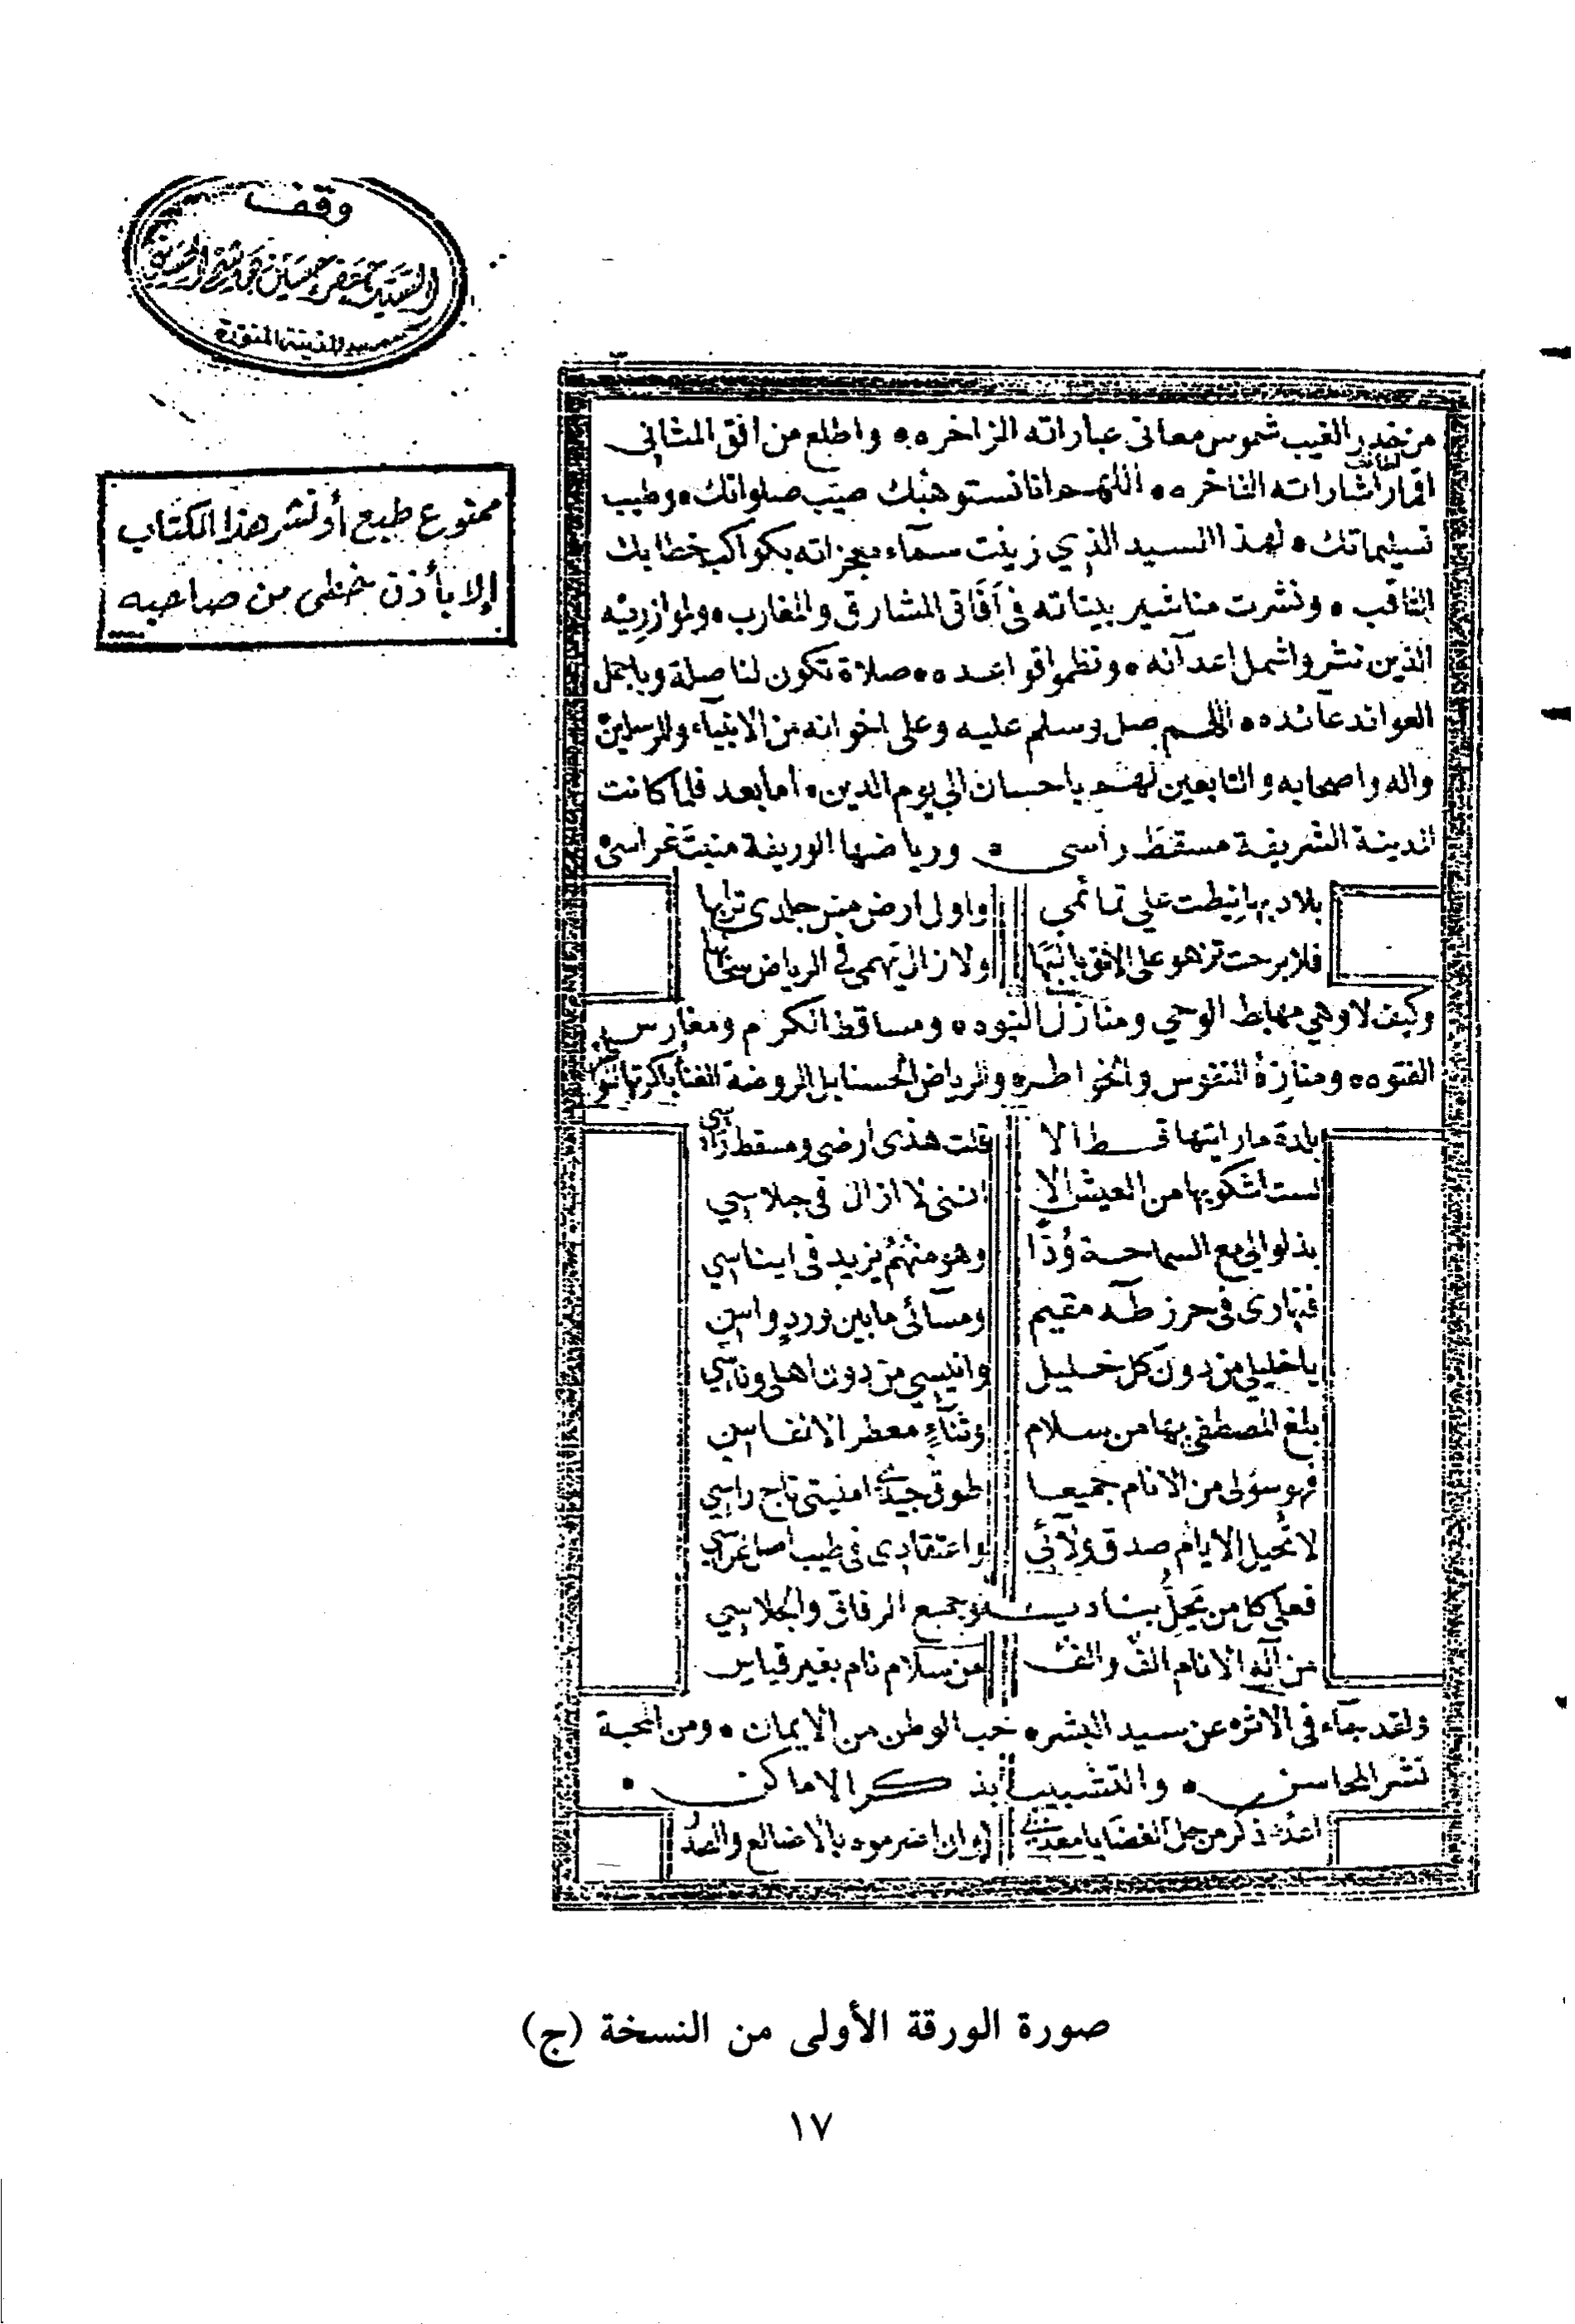 وقف
السيد جعفر حسين
المدينة المنورة
ممنوع طبع أو نشر هذا الكتاب
إلا بأذن خطى من صاحبه
من خدر الغيب شموس معانى عباراته الزاخره ٥ واطلع من افق المثاني
لطائف
اقمار اشاراته الفاخره ٥ اللهم انا نستوهبك صيب صلواتك ٥ وطيب
تسليماتك ٥ لهذا السيد الذي زينت سمآء معجزاته بكواكب خطابك
الثاقب ٥ ونشرت مناشير بيناته في آفاق المشارق والمغارب ٥ ولموازريه
الذين نشروا شمل اعدآئه ٥ ونظموا قواعده ٥ صلاة تكون لنا صلة وباجمل
العوائد عائده ٥ اللهم صل وسلم عليه وعلى اخوانه من الانبيآء والمرسلين
واله واصحابه والتابعين لهم باحسان الي يوم الدين ٥ اما بعد فلما كانت
المدينة الشريفة مسقط راسى ٥ ورياضها الوريفة منبت غراسى
بلاد بها نيطت علي تمائمي واول ارض مس جلدى ترابها
فلا برحت تزهو على الافق بالبها ولا زال يهمي في الرياض سحابها
وكيف لا وهي مهابط الوحي ومنازل النبوه ٥ ومساقط الكرم ومغارس
الفتوه ٥ ومنازة النفوس والخواطر ٥ والرياض الحسنا بل الروضة الغنا باكرتها
بلدة ما رايتها قط الا قلت هذى ارضى ومسقط راسي
لست اشكو بها من العيش الا اننى لا ازال فى جلاسي
بذلوا لي مع السماحة ودا وهو منهم يزيد فى ايناسي
فنهارى فى حرز طه مقيم ومسآئى ما بين ورد واس
يا خليلي من دون كل خليل وانيسي من دون اهلى وناسي
بلغ المصطفي بها من سلام وثنآء معطر الانفاس
فهو سؤلى من الانام جميعا طوق جيدي امنيتى تاج راسي
لا تحيل الايام صدق ولآئي واعتقادي فى طيب اصل غراسي
فعلي كل من يحل بناديـــه وجميع الرفاق والجلاسي
من آله الانام الف والف من سلام نام بغير قياس
ولقد جآء في الاثر ٥ عن سيد البشر ٥ حب الوطن من الايمان ٥ ومن المحبة
نشر المحاسن ٥ والتشبيب بذكر الاماكن ٥
اعد ذكر من حل الغضا يا معذبي وان اضرموه بالاضالع
صورة الورقة الأولى من النسخة (ج)
١٧